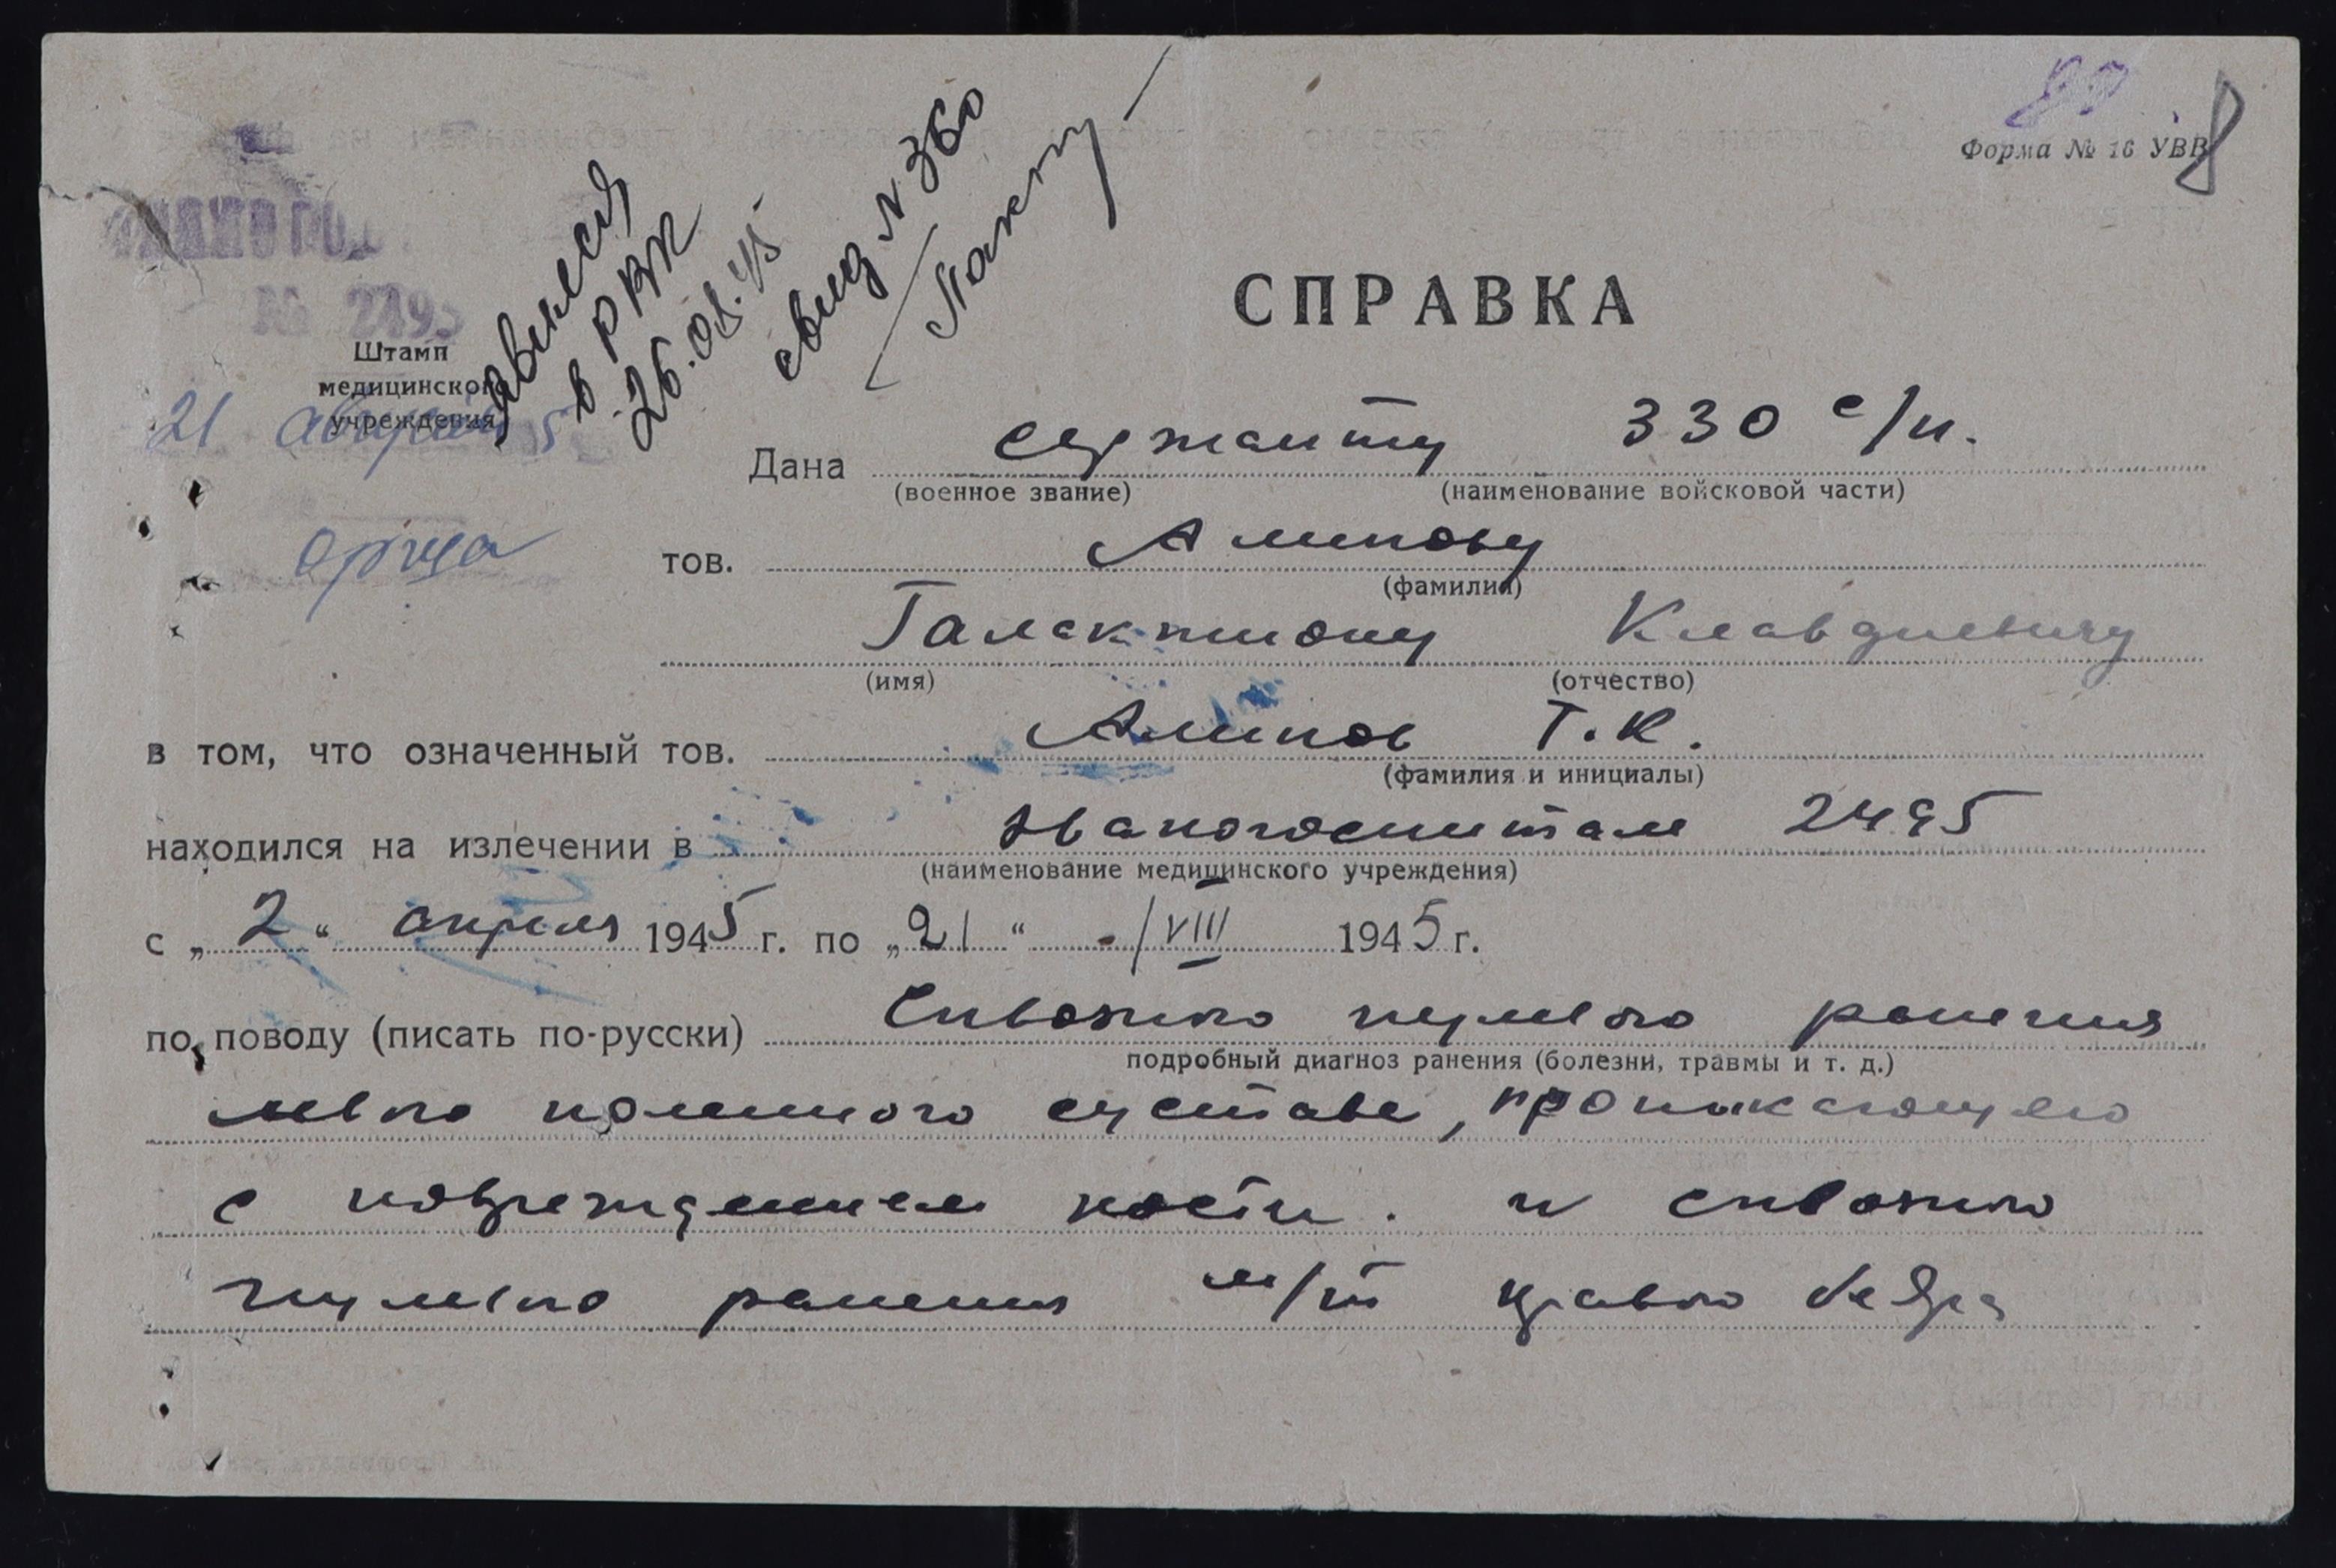 80
8
Форма № 16 УВВ
ЭВАКОГОС
№ 2495
Штамп
медицинского
учреждения
21 августа 5
орша
явился
в РВК
26.08.45
свид N 360
СПРАВКА
Дана сержанту 330 с/п.
(военное звание) (наименование войсковой части)
тов. Алипову
(фамилия)
Галактиону Клавдиевичу
(имя) (отчество)
в том, что означенный тов. Алипов Г. К.
(фамилия и инициалы)
находился на излечении в эвакогоспитале 2495
(наименование медицинского учреждения)
с „2“ апреля 1945 г. по „21“ /VIII 1945 г.
по поводу (писать по-русски) Сквозного пулевого ранения
подробный диагноз ранения (болезни, травмы и т. д.)
левого коленного сустава, проникающего
с повреждением кости. и сквозного
пулевого ранения м/т правого бедра